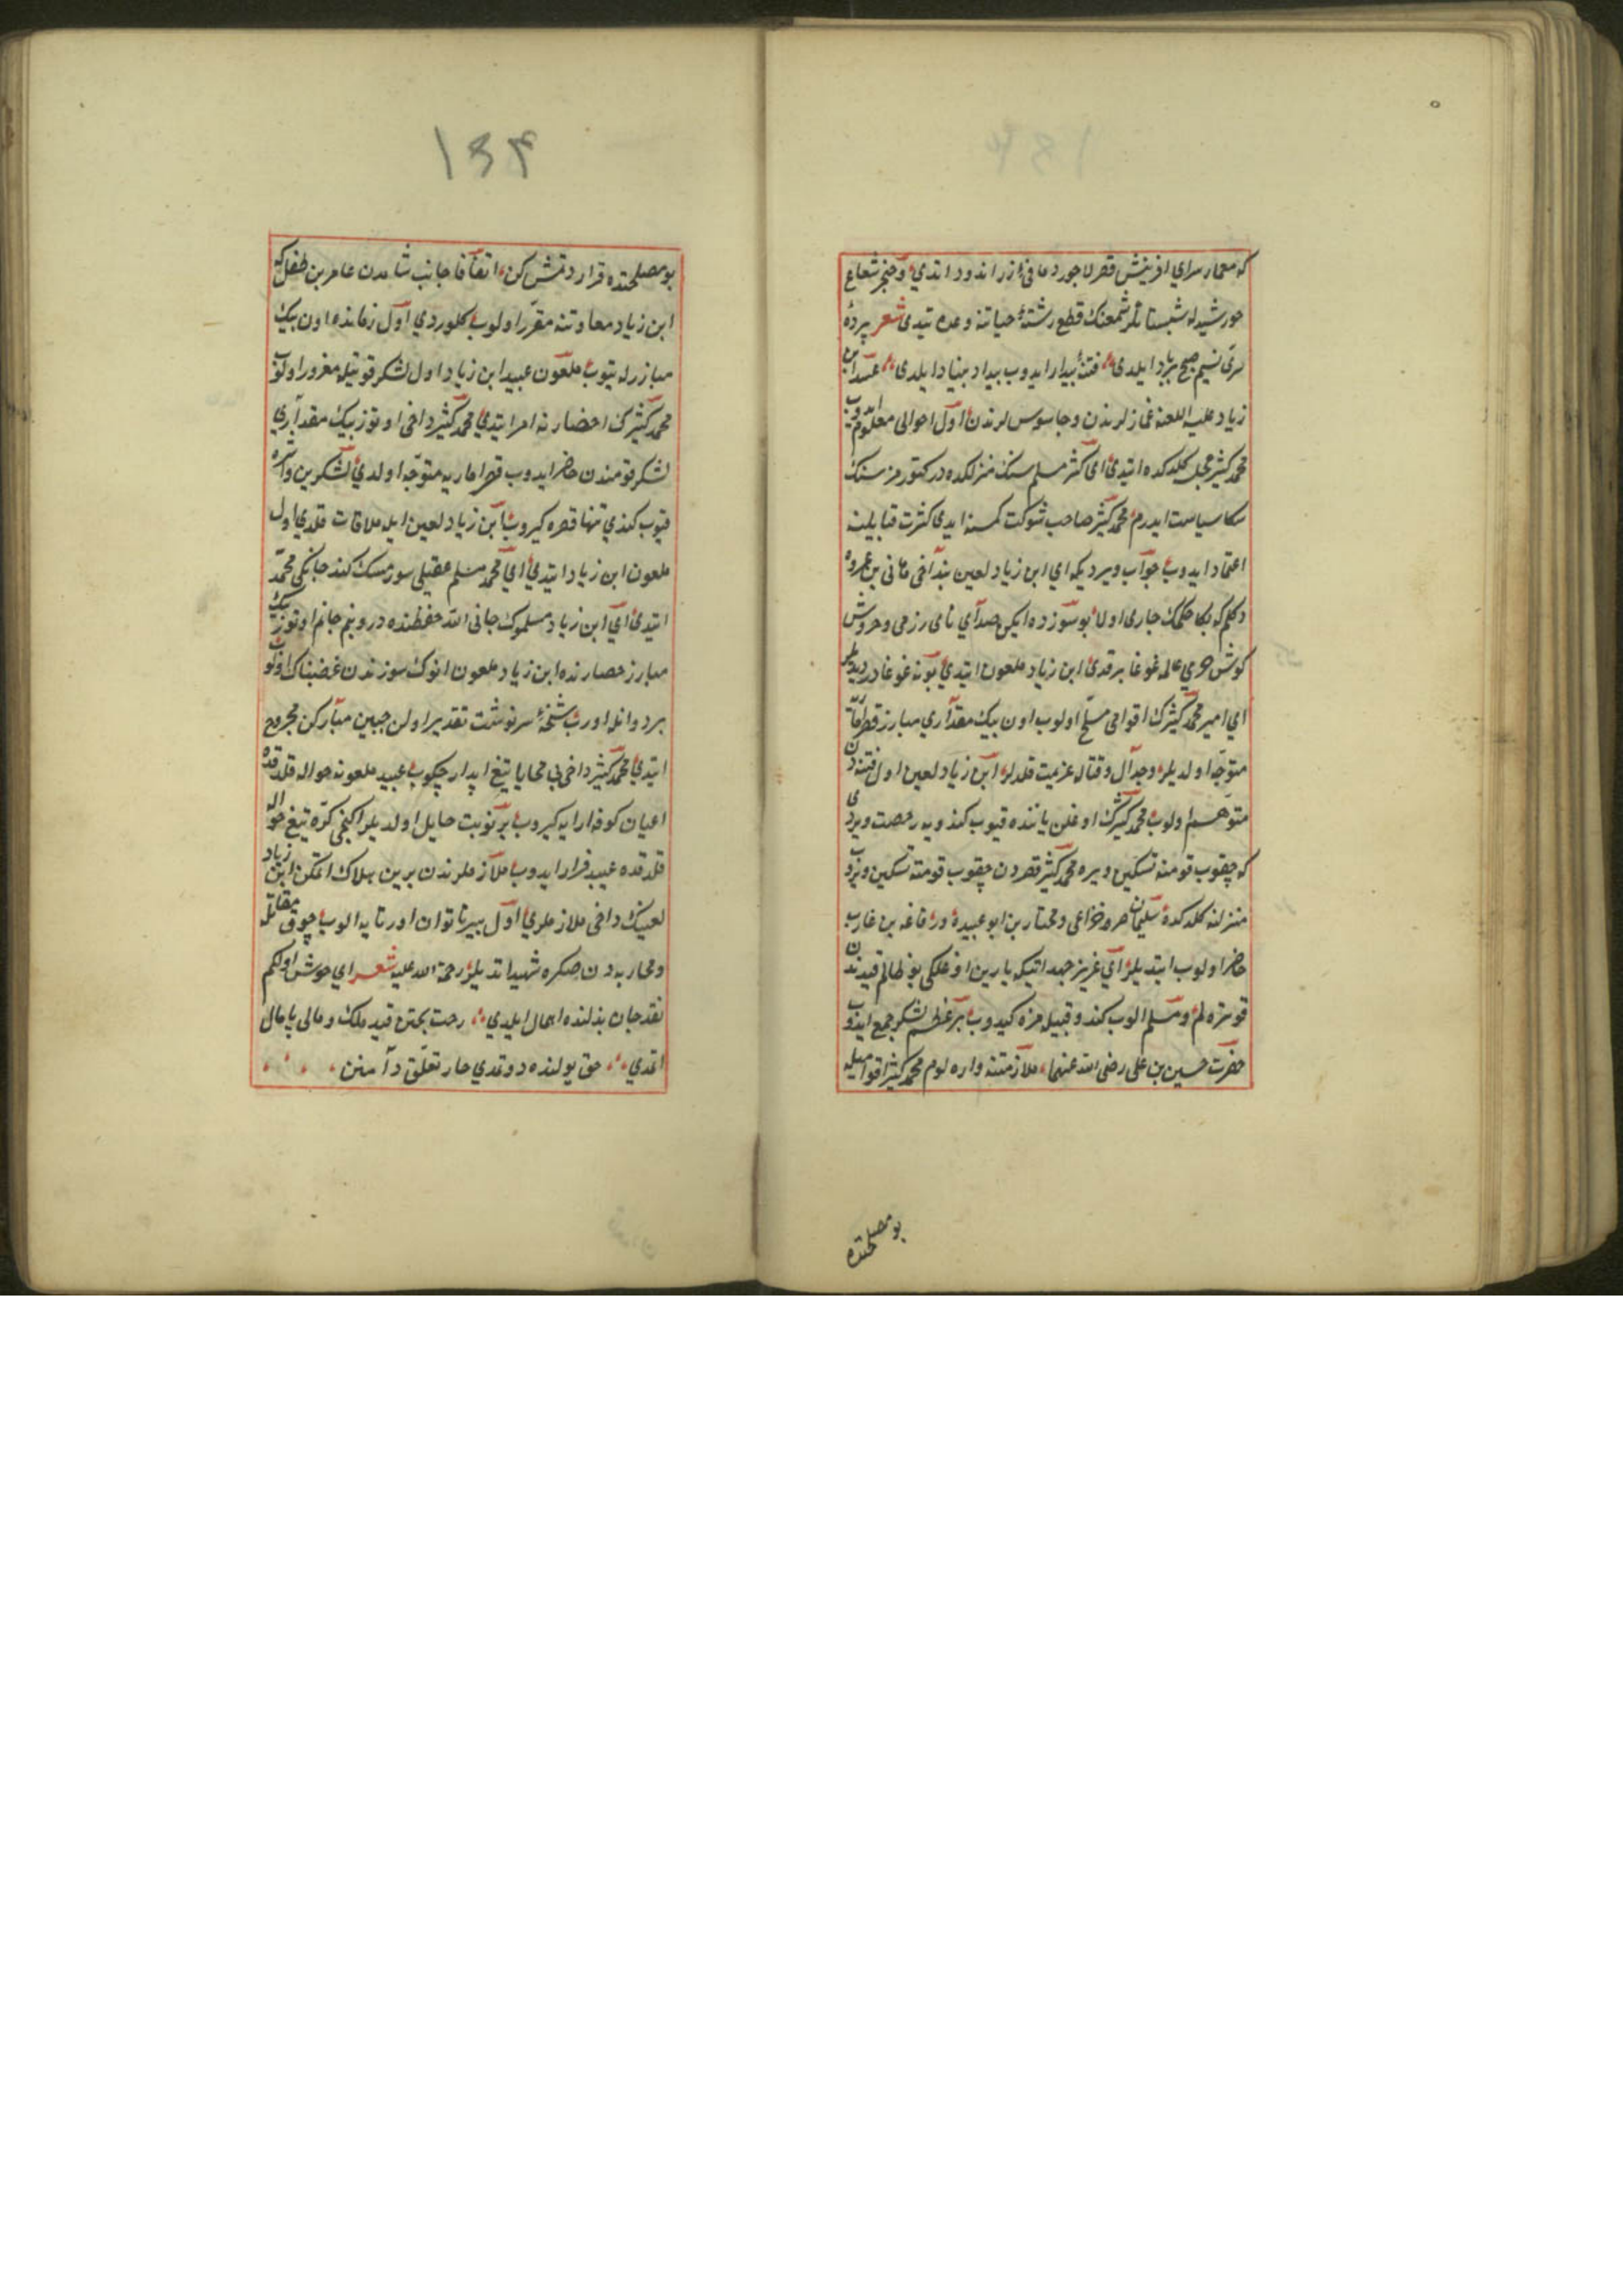 كه معمار سراي افرينش قصر لاجورد مانى زر اندود اتدي وخنجر شعاع
خورشيدله شبستانلر شمعنك قطع رشتهٔ حياتنه وعده تيدى شعر پردهٔ
سرى نسيم صبح برباد ايلدى فتنهٔ بيدار ايدوب بيداد بنياد ايلدى عبيدالله ابن
زياد عليه اللعنه غمازلرندن وجاسوسلرندن اول احوالى معلوم ايدوب
محمد كثير كلدكده ايتدى اى كثير مسلم سنك منزلكده در كتورمزسنك
سكا سياست ايدرم محمد كثير صاحب شوكت كمسه ايدى كثرت قبايلينه
اعتماد ايدوب جواب ويرديكه اي ابن زياد لعين بنداخى هانى بن عروه
دكلم كه بكا حكمك جارى اولا بو سوزده ايكن صداي ناى رزمى وخروش
كوش حربي عالمه غوغا برقدى ابن زياد ملعون ايتدي بو نه غوغادر ديديلر
اي امير محمد كثيرك اقوامى مسلح اولوب اون بيك مقداري مبارز قصر اماره
متوجه اولديلر وجدال وقتاله عزيمت قلديلر ابن زياد لعين اول فتنه دن
متوهم اولوب محمد كثيرك اوغلن ياننده قيوب كندويه رخصت ويردى
كه چقوب قومنه تسكين ويره محمد كثير قصردن چقوب قومنه تسكين ويروب
منزلنه كلدكده سليمان صرد خزاعى ومختار بن ابو عبيده ورفاعه بن عازب
حاضر اولوب ايتديلر اي عزيز جهد اتيكه يارين اوغلكى بو ظالم قيدندن
قورتره لم ومسلم الوب كندو قبيله مزه كيدوب بر عظيم لشكر جمع ايدوب
حضرت حسين بن على رضى الله عنهما ملازمتنه واره لوم محمد كثير اقواميله
بو مصلحتده
۱۳۴
بو مصلحتده قرار دتمش كن اتفاقا جانب شامدن عامر بن طفيل كه
ابن زياد معاونتنه مقرر اولوب كلوردي اول زمانده اون بيك
مبارزله يتوب ملعون عبيد ابن زياد اول لشكر قوتيله مغرور اولوب
محمد كثيرك احضارنه امر ايتدي محمد كثير داخى اوتوز بيك مقداري
لشكر قومندن حاضر ايدوب قصر اماريه متوجه اولدي لشكرين طشره
قيوب كندي تنها قصره كيروب ابن زياد لعين ايله ملاقات قلدي اول
ملعون ابن زياد ايتدي اي محمد مسلم عقيلى سورمسك كندو جانكى محمد
ايتدى اي ابن زياد مسلموك جانى الله حفظنده در وبنم جانم اوتوز بيك
مبارز حصارنده ابن زياد ملعون انوك سوزندن غضبناك اولوب
بر دواتله اورب شيخهٔ سرنوشت تقدير اولن جبين مباركن مجروح
ايتدي محمد كثير داخى بى محابا تيغ ابدار چكوب عبيد ملعونه حواله قلدقده
اعيان كوفه ارايه كيروب بر نوبت حايل اولديلر ايكنجى كره تيغ حواله
قلدقده عبيد فرار ايدوب ملازملرندن برين هلاك اتمكن ابن زياد
لعينك داخى ملازملري اول بير ناتوان اورتايه الوب چوق مقاتله
ومحاربه دن صكره شهيد اتديلر رحمة الله عليه شعر اي خوش اولكم
نقد جان بذلنده اهمال ايلدي رحت بختن قيد ملك ومالى پامال
اتمدي حق يولنده دوتمدي خار تعلق دامنن